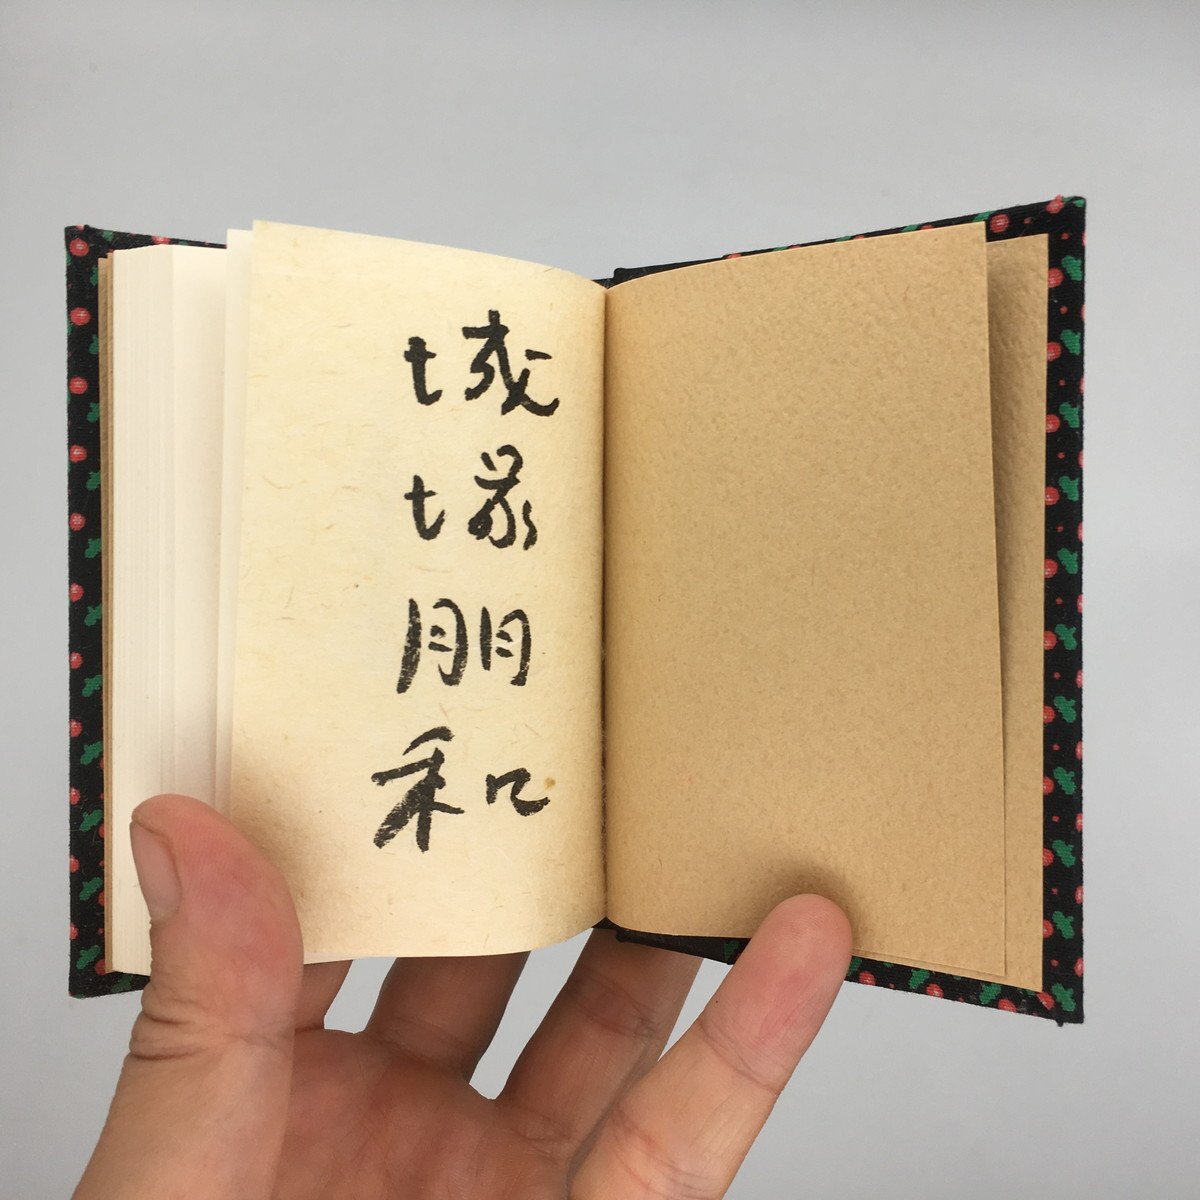 城塚朋和